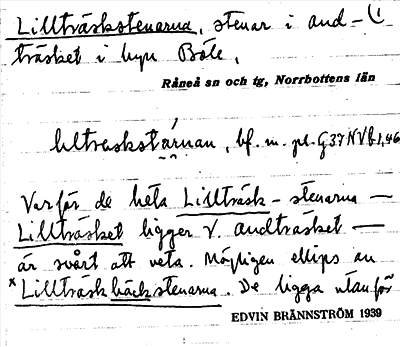 Lillträskstenarna, stenar i and-
träsket i byn Böle,
Råneå sn och tg, Norrbottens län
bf. m. pl. G37NVb.1,46
Varför de heta Lillträsk-stenarna —
Lillträsket ligger V. andträsket —
är svårt att veta. Möjligen ellips av
*Lillträskbäckstenarna. De ligga utanför
EDVIN BRÄNNSTRÖM 1939